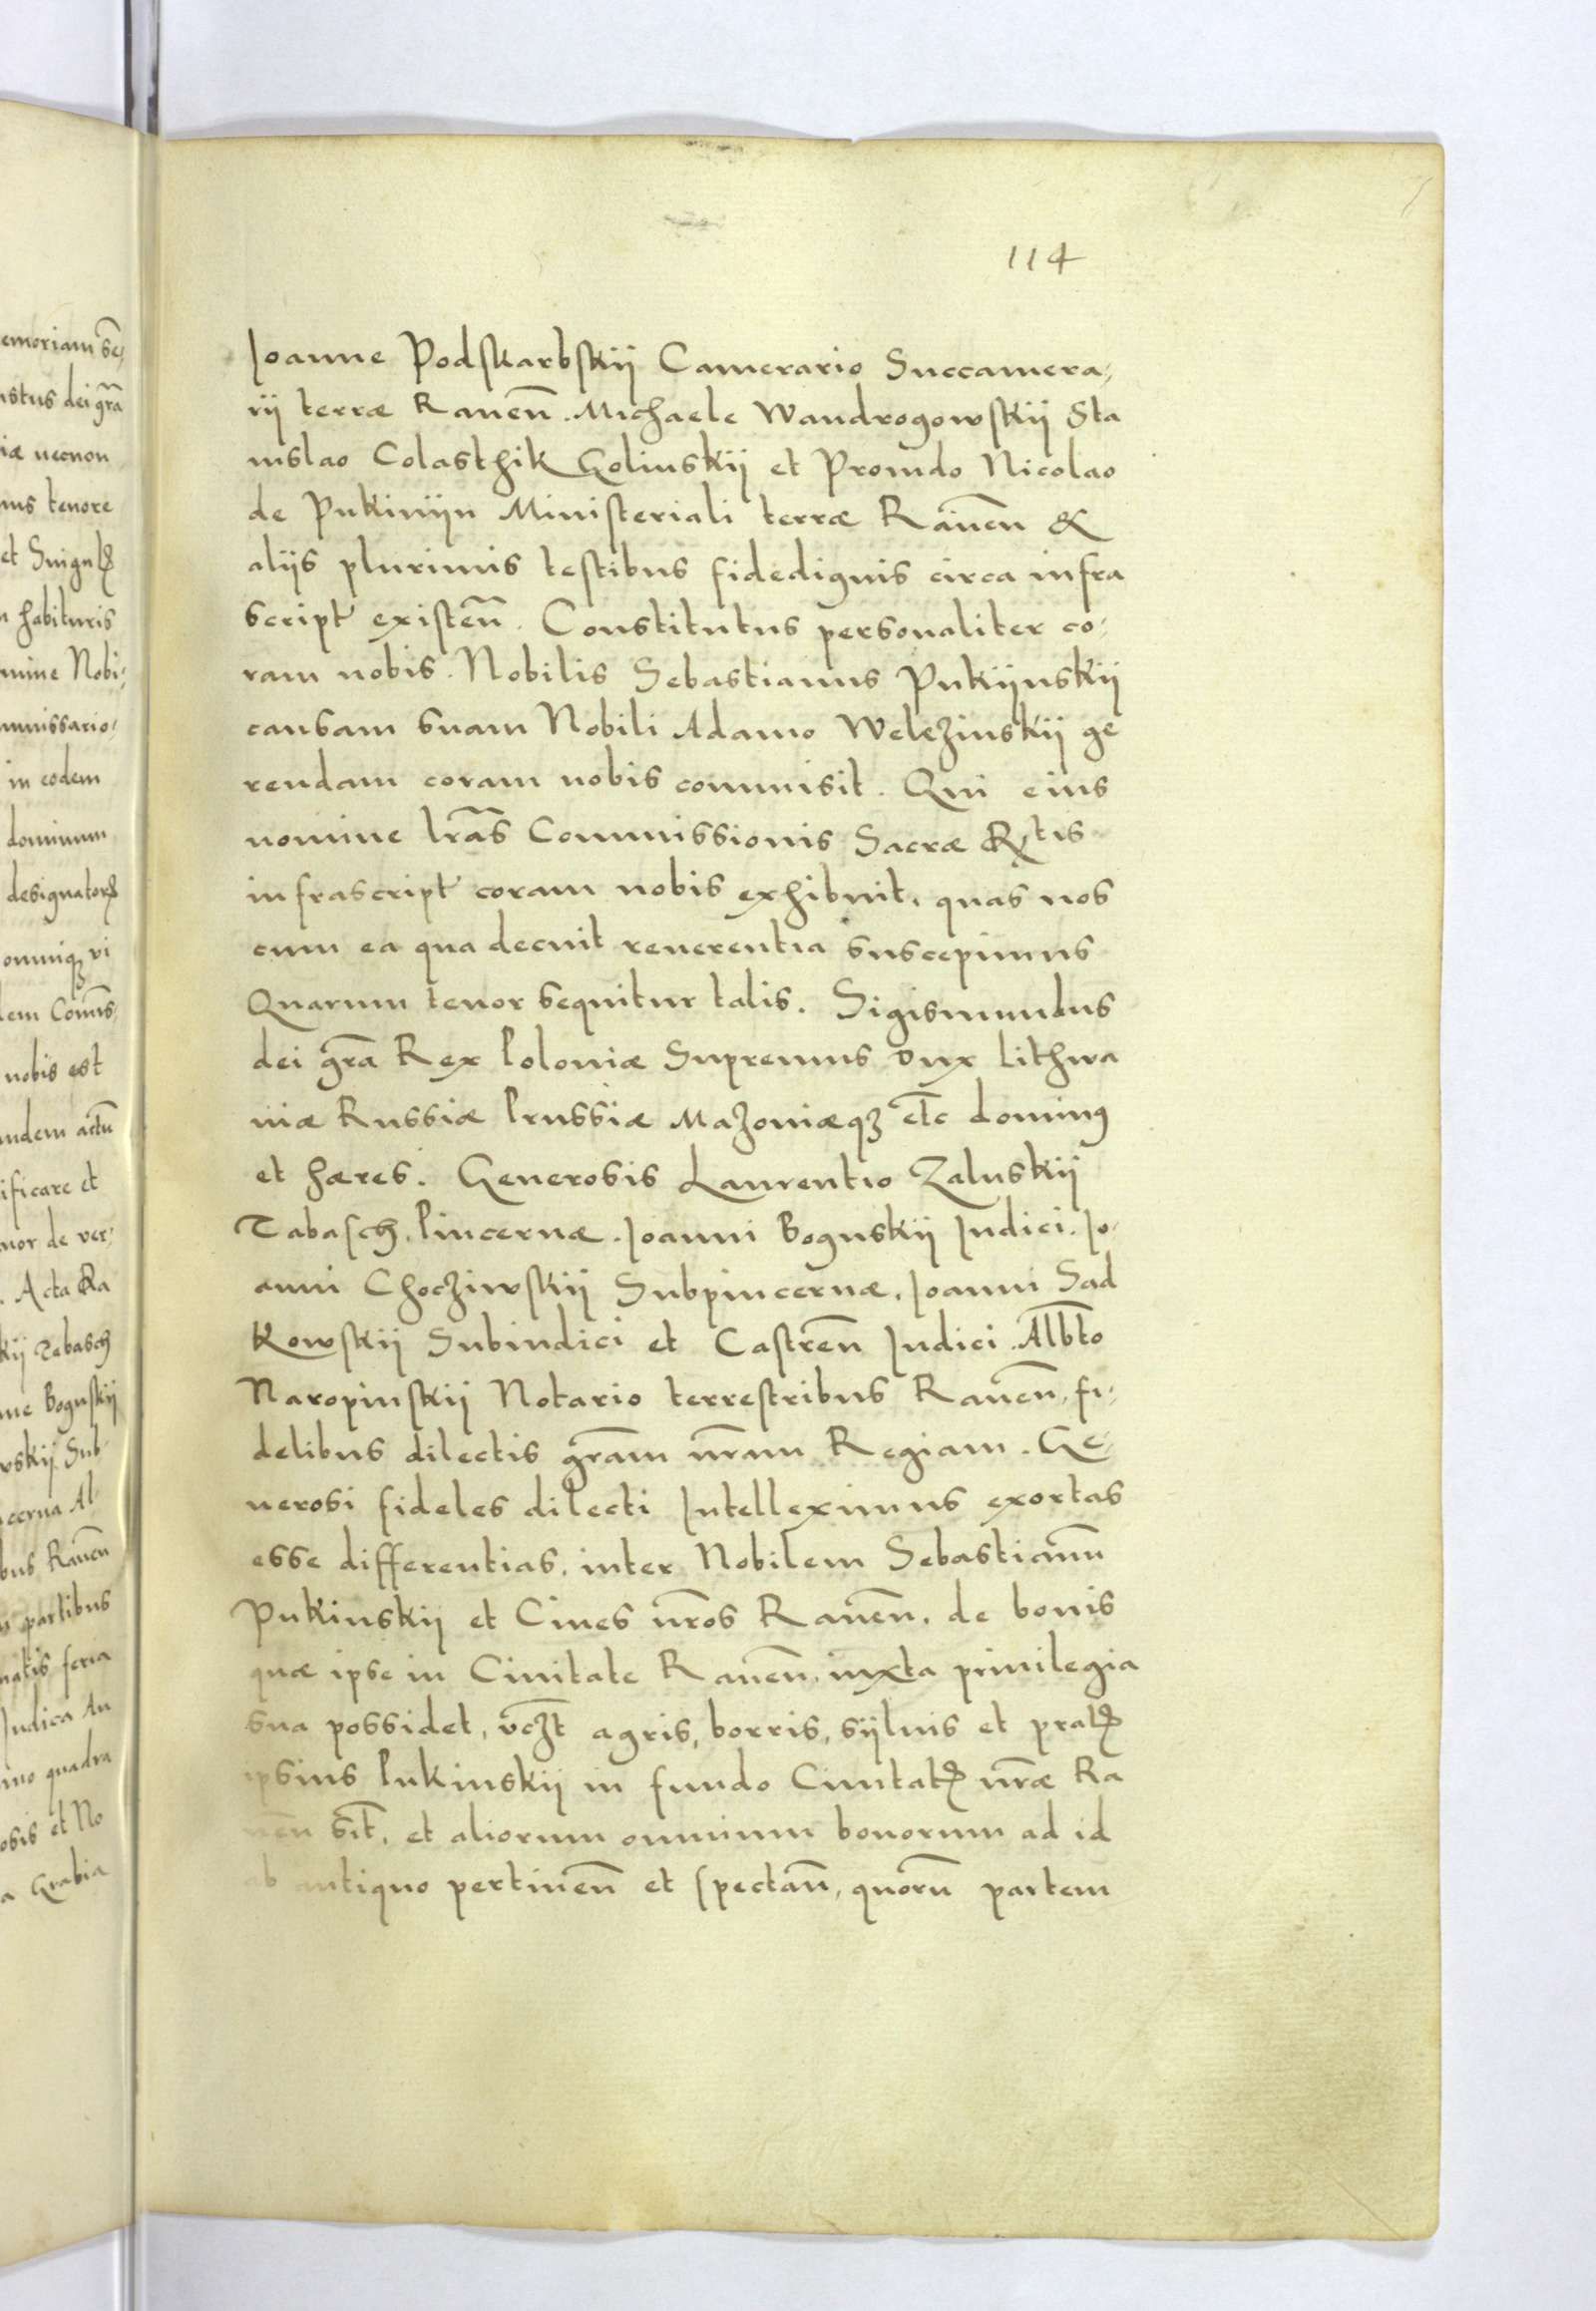 114
Joanne Podskarbskij Camerario Succamera,
rij terræ Rauen̄. Michaele Wandrogowskij Sta
nislao Colasthik Golinskij et Prouido Nicolao
de Pukinijn Ministeriali terræ Rauen̄ &
alijs plurimis testibus fidedignis circa infra
script existen̄. Constitutus personaliter co-
ram nobis. Nobilis Sebastianus Pukijnskij
causam suam Nobili Adamo Welezinskij ge
rendam coram nobis commisit. Qui eius
nomine lrās Commissionis Sacræ Rtis
infrascript coram nobis exhibuit, quas nos
cum ea qua decuit reuerentia suscepimus
Quarum tenor sequitur talis. Sigismundus
dei grā Rex Poloniæ Supremus Dux Lithwa
niæ Russiæ Prussiæ Mazouiæqȝ etc dominꝰ
et hæres. Generosis Laurentio Zaluskij
Tabasch, Pincernæ. Joanni Boguskij Judici. Jo-
anni Chocziwskij Subpincernæ, Joanni Sad
kowskij Subiudici et Castren̄ Judici. Albto
Naropinskij Notario terrestribus Rauen̄, fi-
delibus dilectis grām nrām Regiam. Ge-
nerosi fideles dilecti Intelleximus exortas
esse differentias, inter Nobilem Sebastianū
Pukinskij et Ciues nr̄os Rauen̄. de bonis
quæ ipse in Ciuitate Rauen̄, iuxta priuilegia
sua possidet, vcȝt agris, borris, sijluis et pratꝭ
ipsius Pukinskij in fundo Ciuitatꝭ nr̄æ Ra
uen̄ sit̄, et aliorum omnium bonorum ad id
ab antiquo pertinen̄ et spectan̄, quorū partem
emoriam se,
ustus dei grā
iæ necnon
mus tenore
et Singulꝭ
habituris
mine Nobi-
mmissario-
in eodem
dominum
designatorꝭ
omniqȝ vi
dem Comis,
nobis est
andem actū
ificare et
nor de ver-
. Acta Ra
kij Tebasch
ne Boguskij
wskij Sub-
cerna Al-
bus Rauen̄
partibus
natis feria
Judica An
mo quadra
osis et No
a Grabia